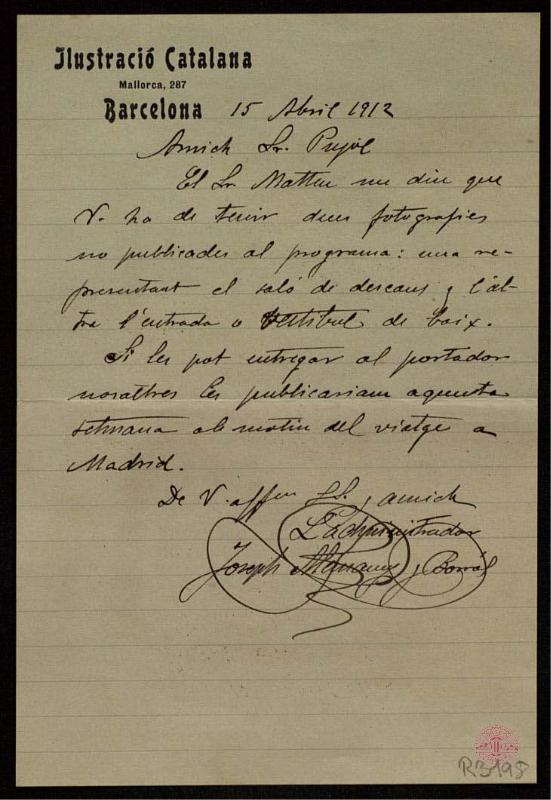 Ilustració Catalana
Mallorca, 287
Barcelona 15 Abril 1912
Amich Sr. Pujol
El Sr Matheu me diu que
V. ha de tenir dues fotografies
no publicades al programa: una re-
presentant el saló de descans y l'al-
tra l'entrada o vestibul de baix.
Si les pot entregar al portador
nosaltres les publicariam aquesta
setmana ab motiu del viatge a
Madrid.
De V. affm SS. y amich
L'administrador
Joseph y Borrás
RB498